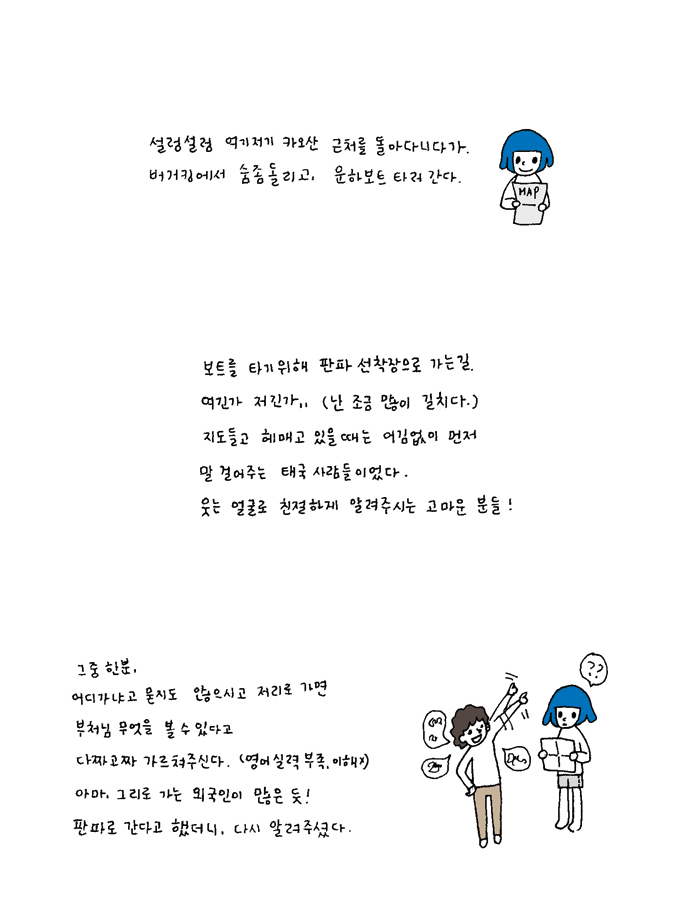 설렁설렁 여기저기 카오산 근처를 돌아다니다가.
버거킹에서 숨좀돌리고, 운하보트 타러 간다.
MAP
보트를 타기위해 판파 선착장으로 가는길.
여긴가 저긴가.. (난 조금 많이 길치다.)
지도들고 헤매고 있을때는 어김없이 먼저
말 걸어주는 태국 사람들이었다.
웃는 얼굴로 친절하게 알려주시는 고마운 분들!
그중 한분,
어디가냐고 묻지도 않으시고 저리로 가면
부처님 무엇을 볼 수 있다고
다짜고짜 가르쳐주신다. (영어실력 부족, 이해x)
아마, 그리로 가는 외국인이 많은 듯!
판파로 간다고 했더니, 다시 알려주셨다.
??